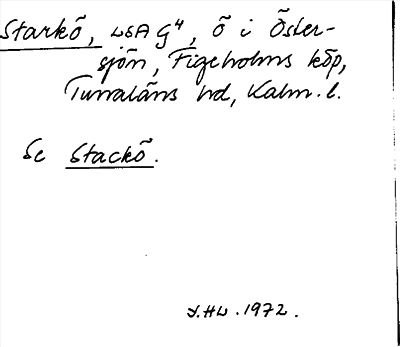 Starkö, LSA G⁴, ö i Öster-
sjön, Figeholms köp,
Tunaläns hd, Kalm. l.
Se Stackö.
S.HLD. 1972.